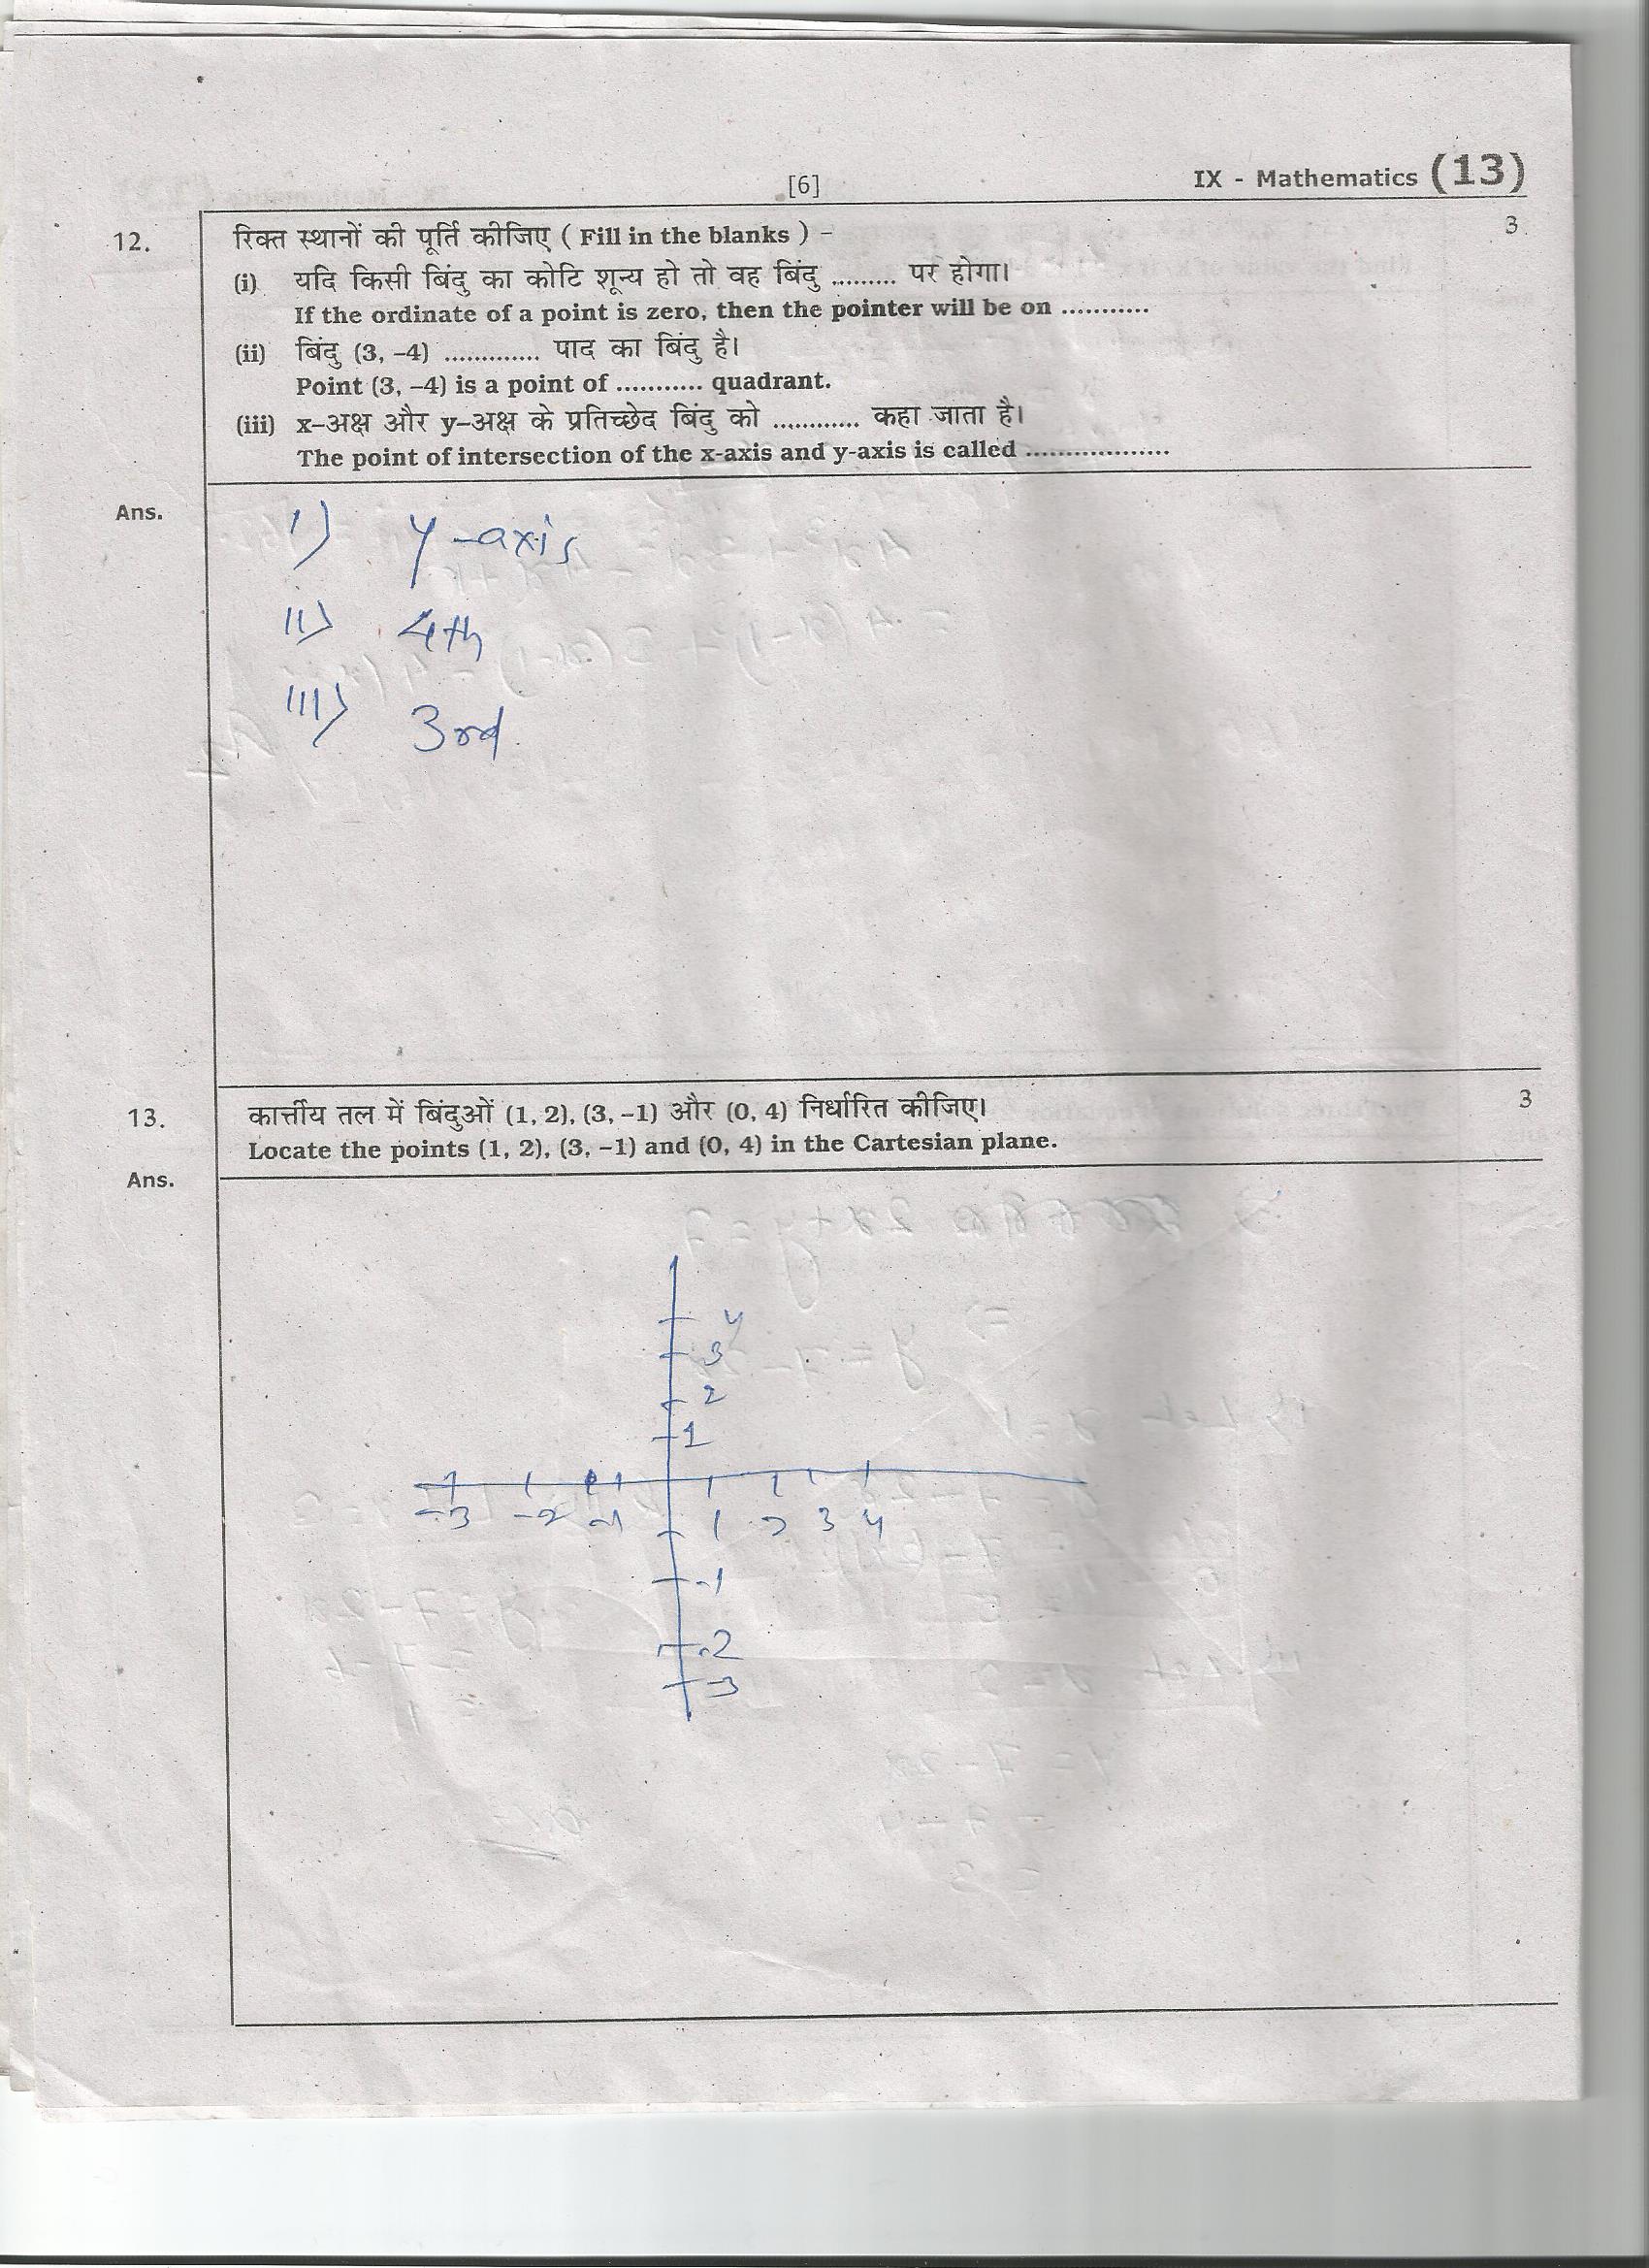 [6]
IX - Mathematics (13)
12.
रिक्त स्थानों की पूर्ति कीजिए ( Fill in the blanks ) –
3
(i) यदि किसी बिंदु का कोटि शून्य हो तो वह बिंदु .......... पर होगा।
If the ordinate of a point is zero, then the pointer will be on ...........
(ii) बिंदु (3, –4) ............. पाद का बिंदु है।
Point (3, –4) is a point of ........... quadrant.
(iii) x–अक्ष और y–अक्ष के प्रतिच्छेद बिंदु को ............ कहा जाता है।
The point of intersection of the x-axis and y-axis is called ..................
Ans.
I) y-axis
II) 4th
III) 3rd.
13.
कार्त्तीय तल में बिंदुओं (1, 2), (3, –1) और (0, 4) निर्धारित कीजिए।
3
Locate the points (1, 2), (3, –1) and (0, 4) in the Cartesian plane.
Ans.
4
3
2
1
-3 -2 -1 1 2 3 4
-1
-2
-3